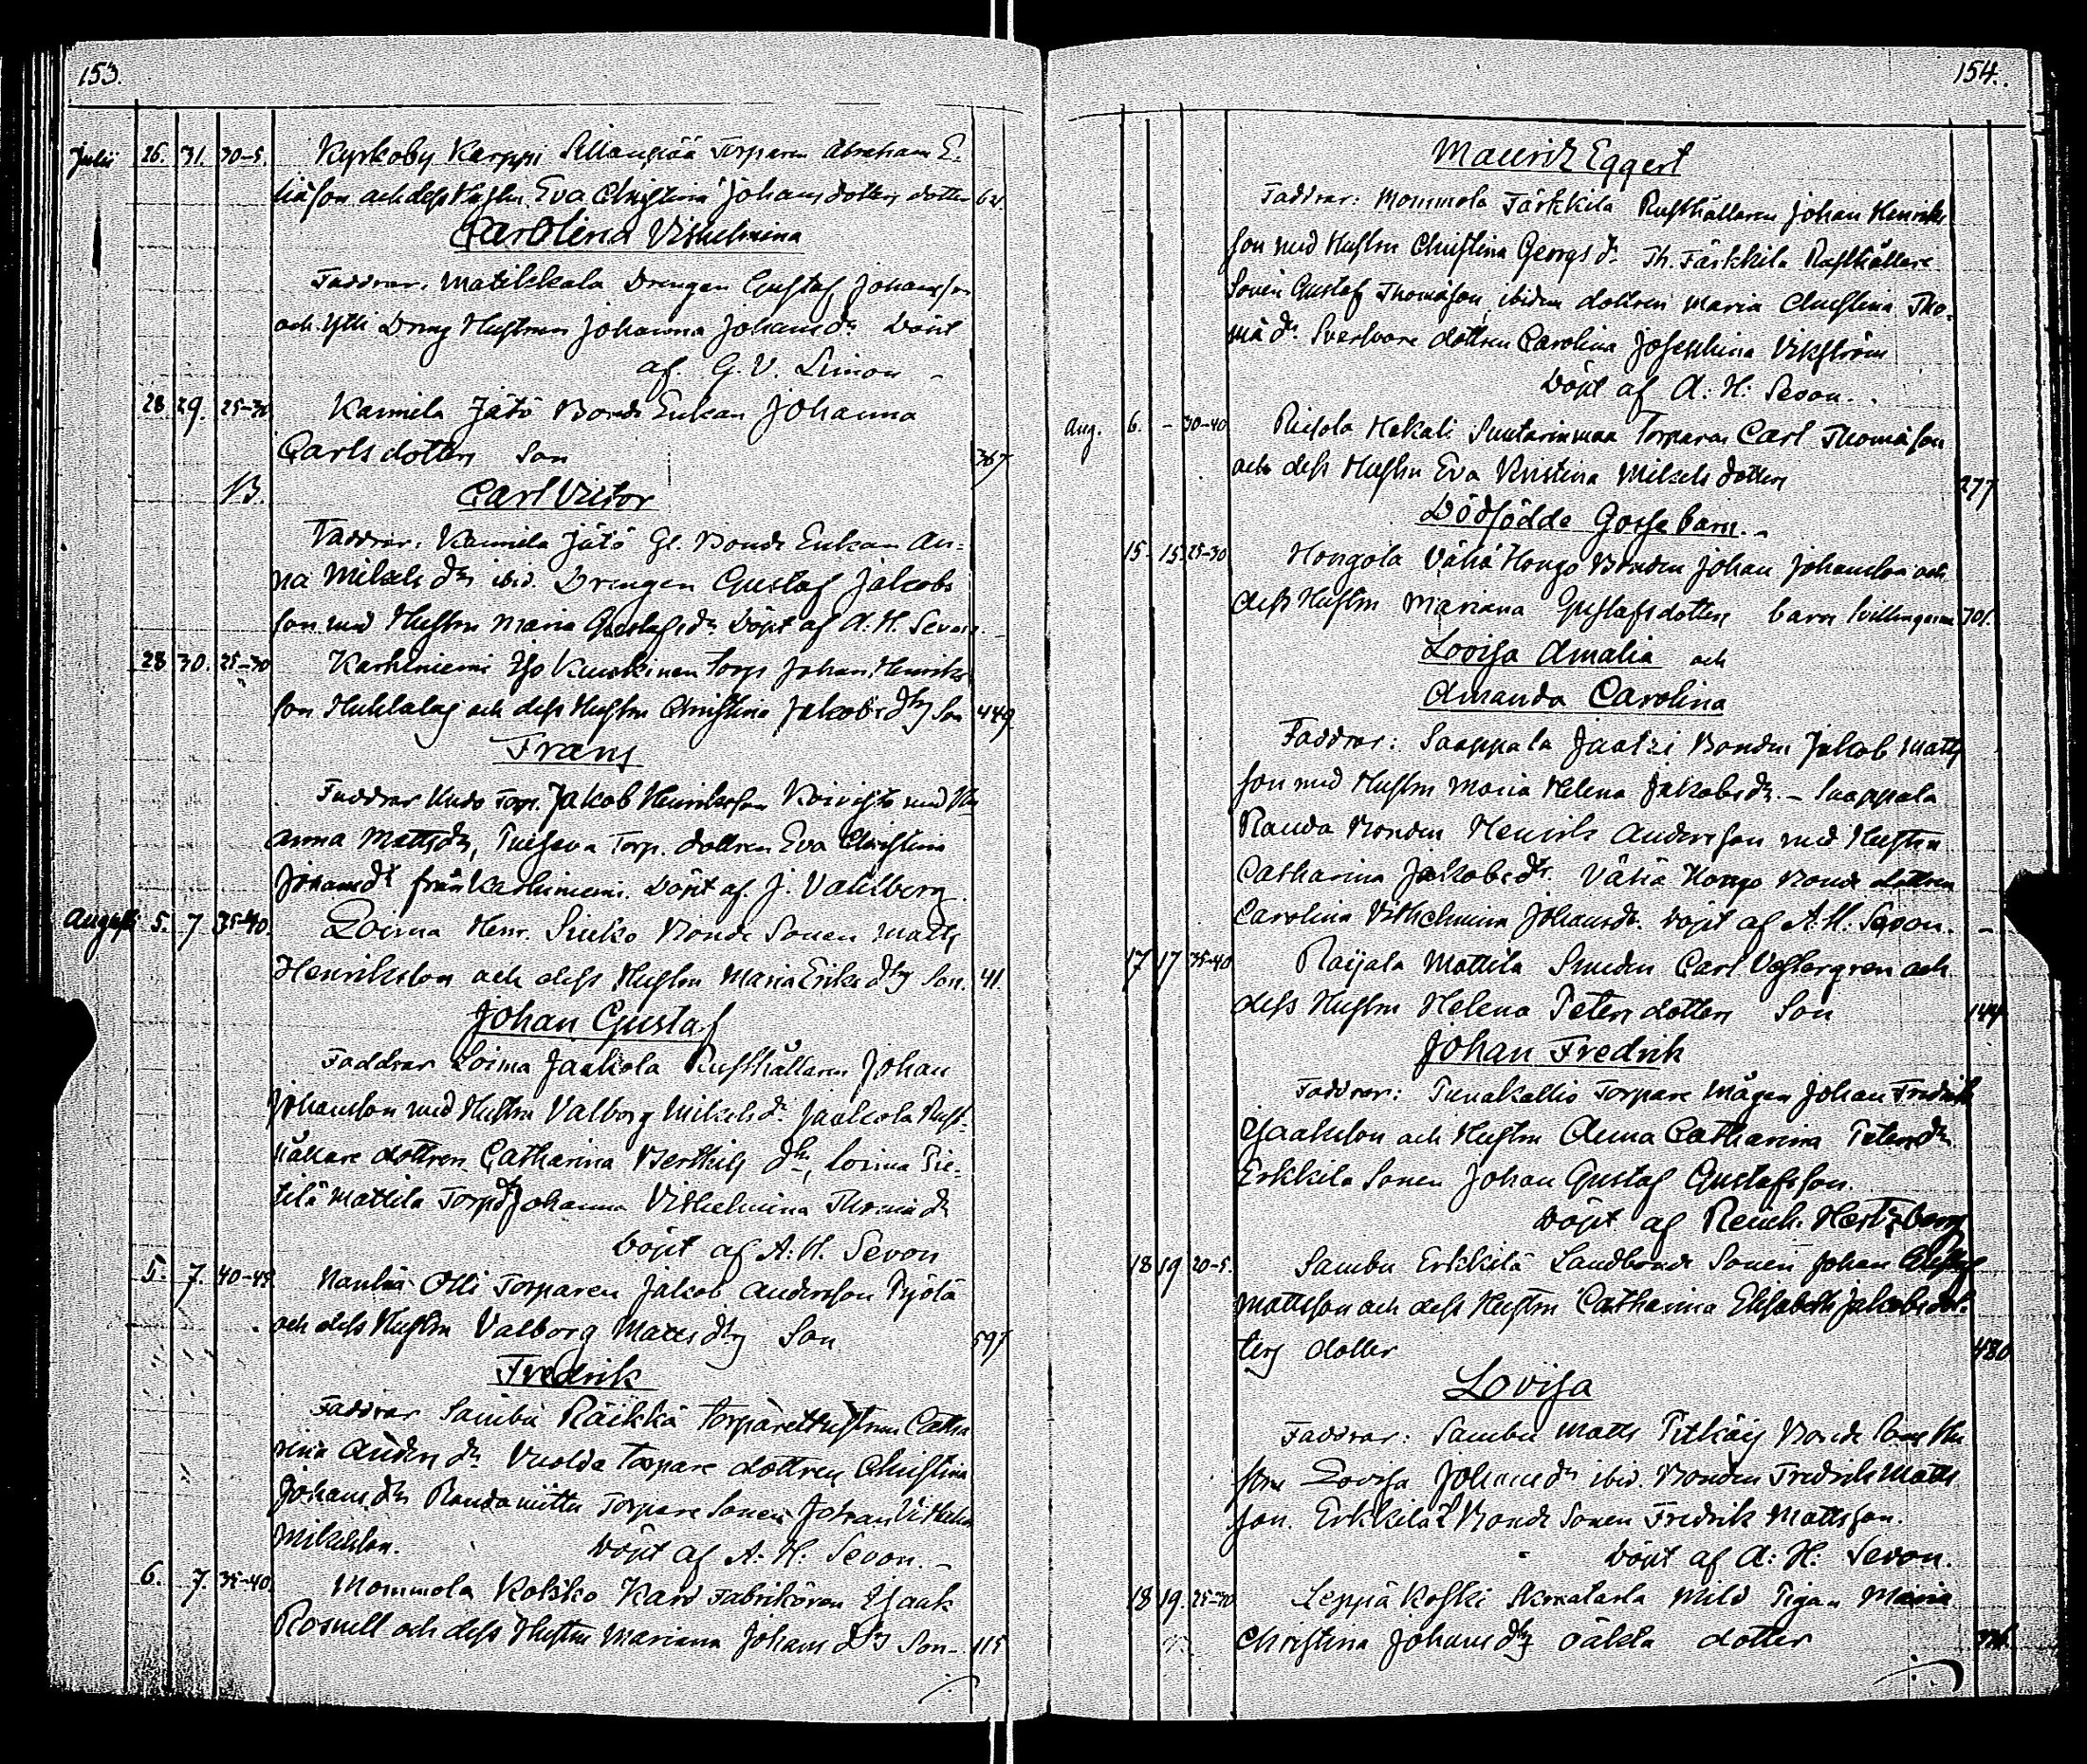 153.
Julii 26. 31. 30-5. Kyrkoby Karppi Sillanpää Torparen Abraham E-
liäson och dess Hustru Eva Christina Johans dotters dotter 62.
Carolina Vilhelmina
Faddrar: Matikkala Drengen Gustaf Johansson
och Ylli Dreng Hustrun Johanna Johans dr Döpt
af. G. V. Limon -
28 29. 25-30 Karnila Jätö Bonde Enkan Johanna
Carls dotters Son 367
13. Carl Victor
Faddrar: Karnila Jätö Gl. Bonde Enkan An=
na Mikels dr ibid. Drengen Gustaf Jakobs
son med Hustru Maria Gustafs dr Döpt af A. H. Sevon.
28 30. 25-30 Karhiniemi Torp. Johan Henriks
son Huhtalag och dess Hustru Christina Jakobs drs Son 449
Frans
Faddrar Torp. Jakob Henriksson Koivisto med
anna Matts dr, Torp. dottren Eva Christina
Johans dr från Karhiniemi. Döpt af J. Vahlberg.
Augusti 5. 7 35-40. Loima Henr. Sinko Bonde Sonen Matts
Henriksson och dess Hustru Maria Eriks drs Son. 41.
Johan Gustaf
Faddrar Loima Jaakola Rusthållaren Johan
Johansson med Hustru Valborg Mikels dr Jaakola Rust-
hållare dottren Catharina Bertils dr, Loima Pie-
tilä Mattila Torp dr Johanna Vilhelmina Thomä dr
Döpt af A. H. Sevon
5. 7. 40-45. Nanhia Olli Torparen Jakob Andersson Pyölä
och dess Hustru Valborg Matts drs Son 597
Fredrik
Faddrar Sambu Räikkä Torpare Hustrun Catha
rina Anders dr Vuolda Torpare dottren Christina
Johans dr Randanittu Torpare Sonen Johan Vilhelm
Mikelsson. Döpt af A. H. Sevon. -
6. 7. 35-40. Mommola Kokko Kard Fabrikören Isaak
Rosnell och dess Hustru Mariana Johans drs Son- 115
154.
Mauritz Eggert
Faddrar: Mommola Färkkilä Rusthållaren Johan Henriks
son med Hustru Christina Georgs dr Th. Färkkilä Rusthållare
Sonen Gustaf Thomäson, ibidem dottren Maria Christina Tho-
mä dr Svarfvare dottren Carolina Josephina Vikström
Döpt af A: H: Sevon.
Aug. 6. - 30-40 Risola Hakali Suutarinmaa Torparen Carl Thomäson
och dess Hustru Eva Kristina Mikels dotters 277
Dödfödde Gossebarn. -
15. 15. 25-30 Hongola Vähä Hongo Bonden Johan Johansson och
dess Hustru Mariana Gustafsdotters barn tvillingarna 301.
Lovisa Amalia och
Amanda Carolina
Faddrar: Saappala Jaakri Bonden Jakob Matts
son med Hustru Maria Helena Jakobs dr. - Saappala
Randa Bonden Henrik Andersson med Hustru
Catharina Jakobs dr. Vähä Hongo Bonde dottren
Carolina Vilhelmina Johans dr. Döpt af A: H: Sevon. -
17 17 35-40 Raijala Mattila Smeden Carl Vestergren och
dess Hustru Helena Peters dotters Son 144
Johan Fredrik
Faddrar: Punakallio Torpare Mågen Johan Fredrik
Isaaksson och Hustru Anna Catharina Peters dr
Erkkilä Sonen Johan Gustaf Gustafsson.
Döpt af Reinh. Hertzberg
18 19 20-5. Sambu Erkkilä Landbonde Sonen Johan
Mattsson och dess Hustru Catharina Elisabeth Jakobs dot-
ters dotter 480
Lovisa
Faddrar: Sambu Matts Pitkäys Bonde Sons Hu
stru Lovisa Johans dr ibid. Bonden Fredrik Matts
son. Erkkilä Bonde Sonen Fredrik Mattsson.
Döpt af A: H: Sevon.
18 19. 25-30 Leppä Koski Mild Pigan Maria
Christina Johans drs oäkta dotter